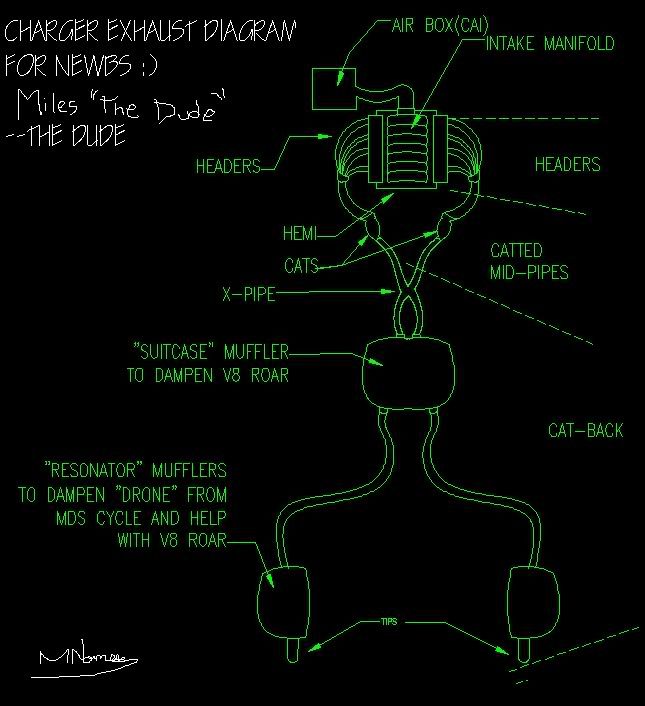 CHARGER EXHAUST DIAGRAM
FOR NEWBS :)
Miles "The Dude"
--THE DUDE
AIR BOX(CAI)
INTAKE MANIFOLD
HEADERS
HEADERS
HEMI
CATS
CATTED
MID-PIPES
X-PIPE
"SUITCASE" MUFFLER
TO DAMPEN V8 ROAR
CAT-BACK
"RESONATOR" MUFFLERS
TO DAMPEN "DRONE" FROM
MDS CYCLE AND HELP
WITH V8 ROAR
TIPS